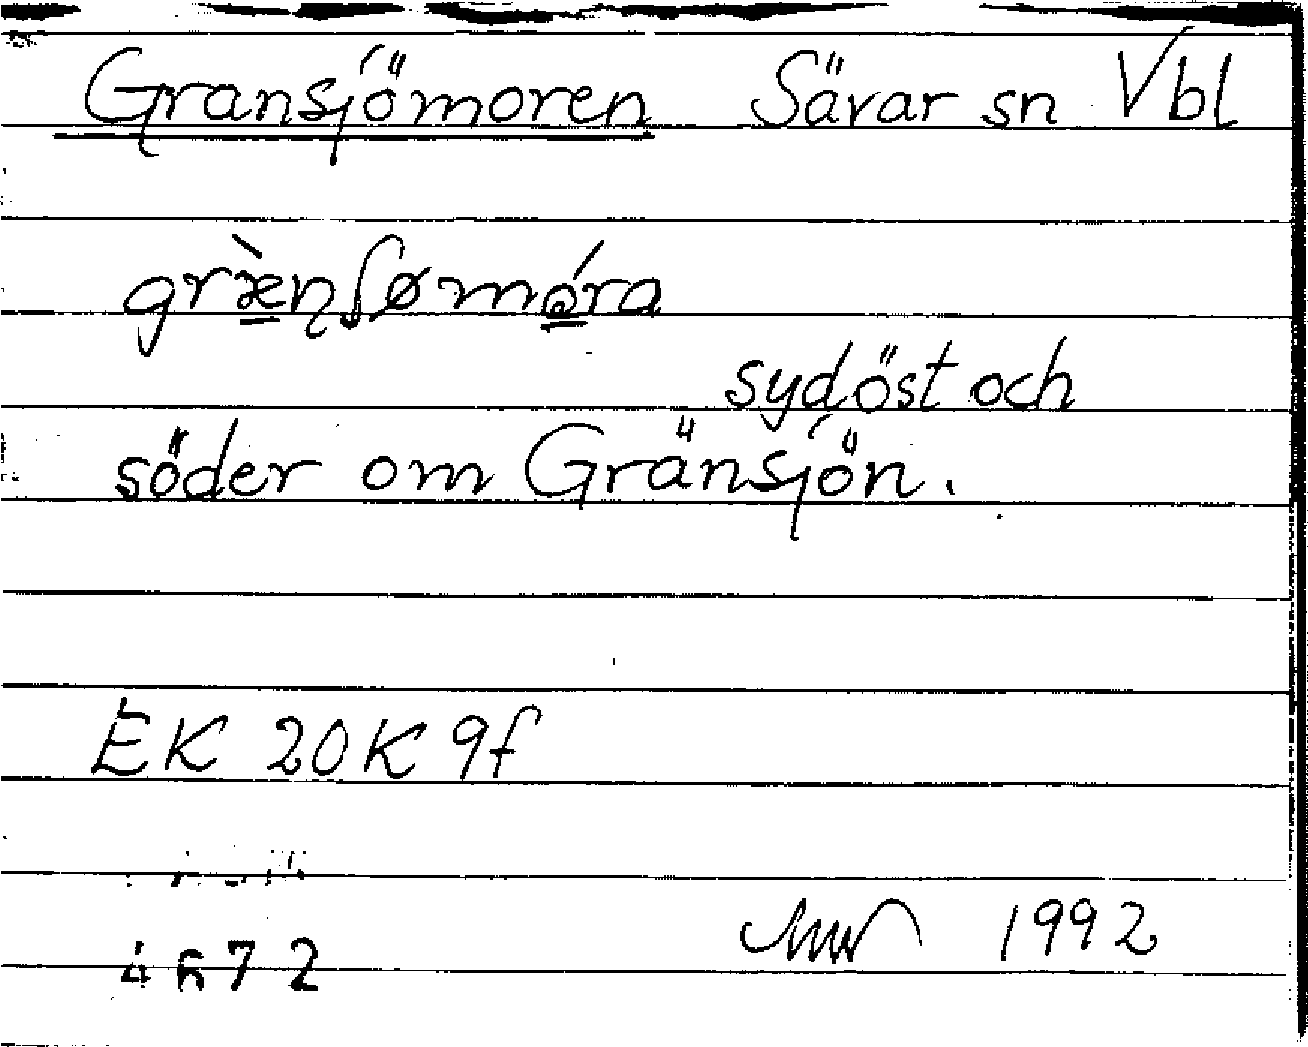 Gransjömoren Särar sn Vbl
græ̀nʃømóra
sydöst och
söder om Gränsjön.
EK 20K 9f
1992
4672